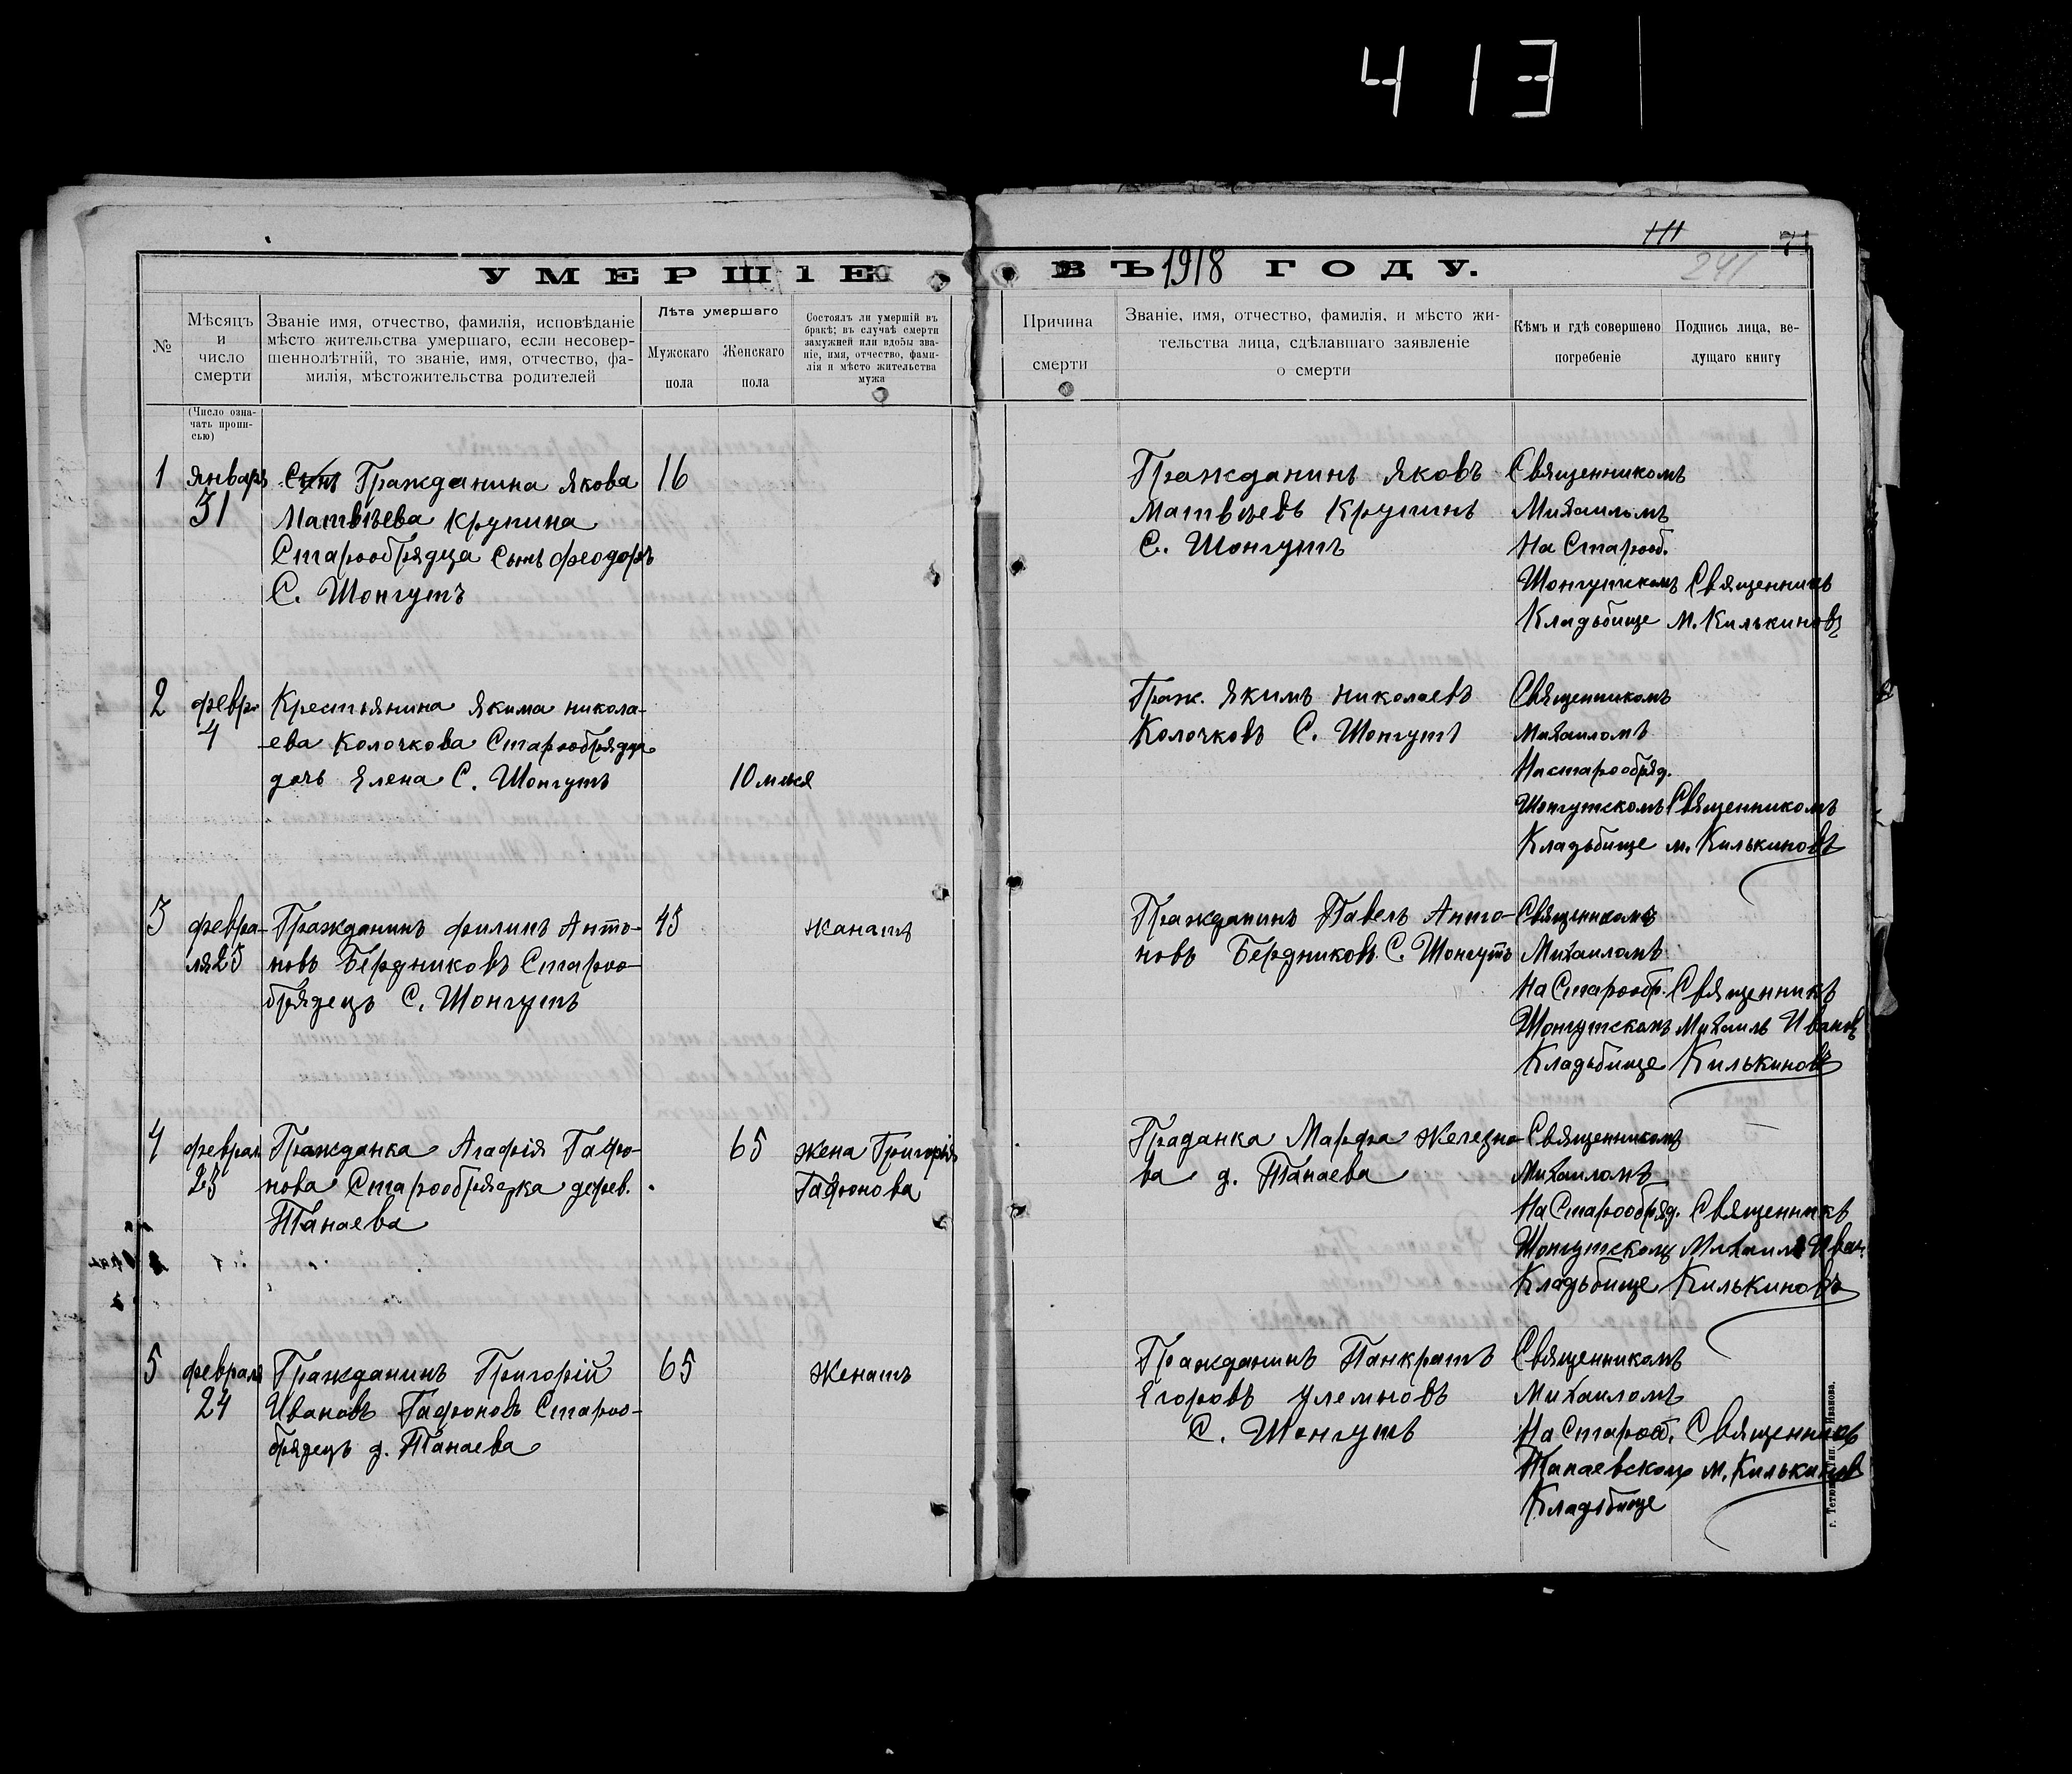 413
111
71
241
УМЕРШІЕ ВЪ 1918 ГОДУ.
№
Мѣсяцъ
и
число
смерти
Званіе имя, отчество, фамилія, исповѣданіе
мѣсто жительства умершаго, если несовер-
шеннолѣтній, то званіе, имя, отчество, фа-
милія, мѣстожительства родителей
Лѣта умершаго
Мужскаго
пола
Женскаго
пола
Состоялъ ли умершій въ
бракѣ; въ случаѣ смерти
замужней или вдовы зва-
ніе, имя, отчество, фами-
лія и мѣсто жительства
мужа
Причина
смерти
Званіе, имя, отчество, фамилія, и мѣсто жи-
тельства лица, сдѣлавшаго заявленіе
о смерти
Кѣмъ и гдѣ совершено
погребеніе
Подпись лица, ве-
дущаго книгу
(Число озна-
чать пропи-
сью)
1
январь
31
Сынъ Гражданина Якова
Матвѣева Крупина
Старообрядца Сынъ Феодоръ
С. Шонгутъ
16
Гражданинъ Яковъ
Матвѣевъ Крупинъ
С. Шонгутъ
Священникомъ
Михаиломъ
На Старооб.
Шонгутскомъ
Кладьбище
Священникъ
М. Килькиновъ
2
февр.
4
Крестьянина Якима Никола-
ева Колочкова Старообрядца
дочь Елена С. Шонгутъ
10 м-ця
Граж. Якимъ Николаевъ
Колочковъ С. Шонгутъ
Священникомъ
Михаиломъ
На старообряд.
Шонгутскомъ
Кладьбище
Священникомъ
М. Килькиновъ
3
февра-
ля 23
Гражданинъ Филипъ Анто-
новъ Бердниковъ Староо-
брядецъ С. Шонгутъ
45
Жанатъ
Гражданинъ Павелъ Анто-
новъ Бердниковъ. С. Шонгутъ
Священникомъ
Михаиломъ
На Старообр.
Шонгутскомъ
Кладьбище
Священникъ
Михаилъ Ивановъ
Килькиновъ
4
феврал
23
Гражданка Агафія Гафо-
нова Старообрядка дерев.
Танаева
65
жена Григорія
Гафонова
Граданка Марфа Железно-
ва д. Танаева
Священникомъ
Михаиломъ
На Старообряд.
Шонгутскомъ
Кладьбище
Священникъ
Михаилъ Иван.
Килькиновъ
5
февраля
24
Гражданинъ Григорій
Ивановъ Гафоновъ Староо-
брядецъ д. Танаева
65
Женатъ
Гражданинъ Панкратъ
Егоровъ Улемновъ
С. Шонгутъ
Священникомъ
Михаиломъ
На Старооб.
Танаевскомъ
Кладьбище
Священникъ
М. Килькиновъ
г. Тетюши, Тип. Иванова.